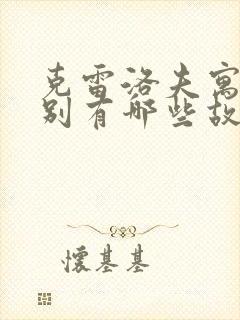 克雷洛夫寓
别有哪些故
懷基基